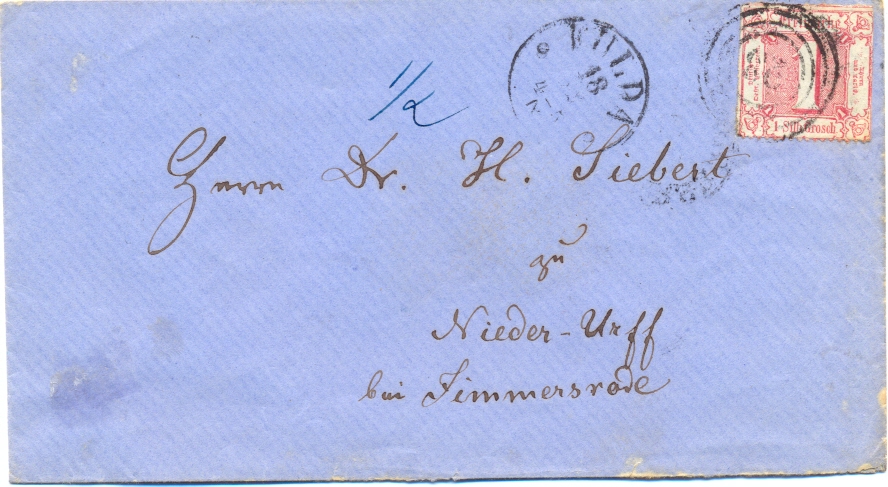 FULDA
18
1 Silb. Grosch
1/2
Herrn Dr. H. Siebert
zu
Nieder-Urff
bei Zimmersrode